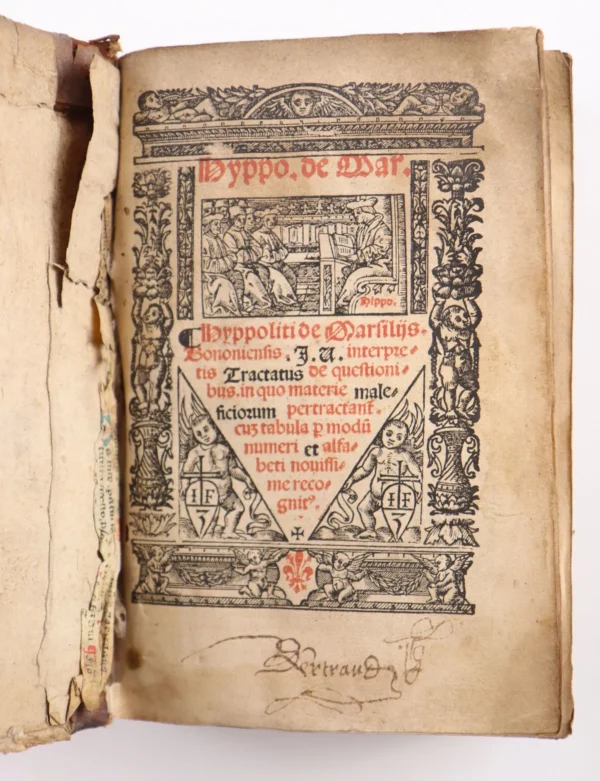 Hyppo. de Mar.
Hippo.
Hyppoliti de Marsilijs.
Bononiensis. J. U. interpre-
tis Tractatus de questioni-
bus. in quo materie male-
ficiorum pertractant᷑
cuȝ tabula ꝑ modū
numeri et alfa-
beti nouissi-
me reco-
gnitꝰ.
I F
I F
Bertraud